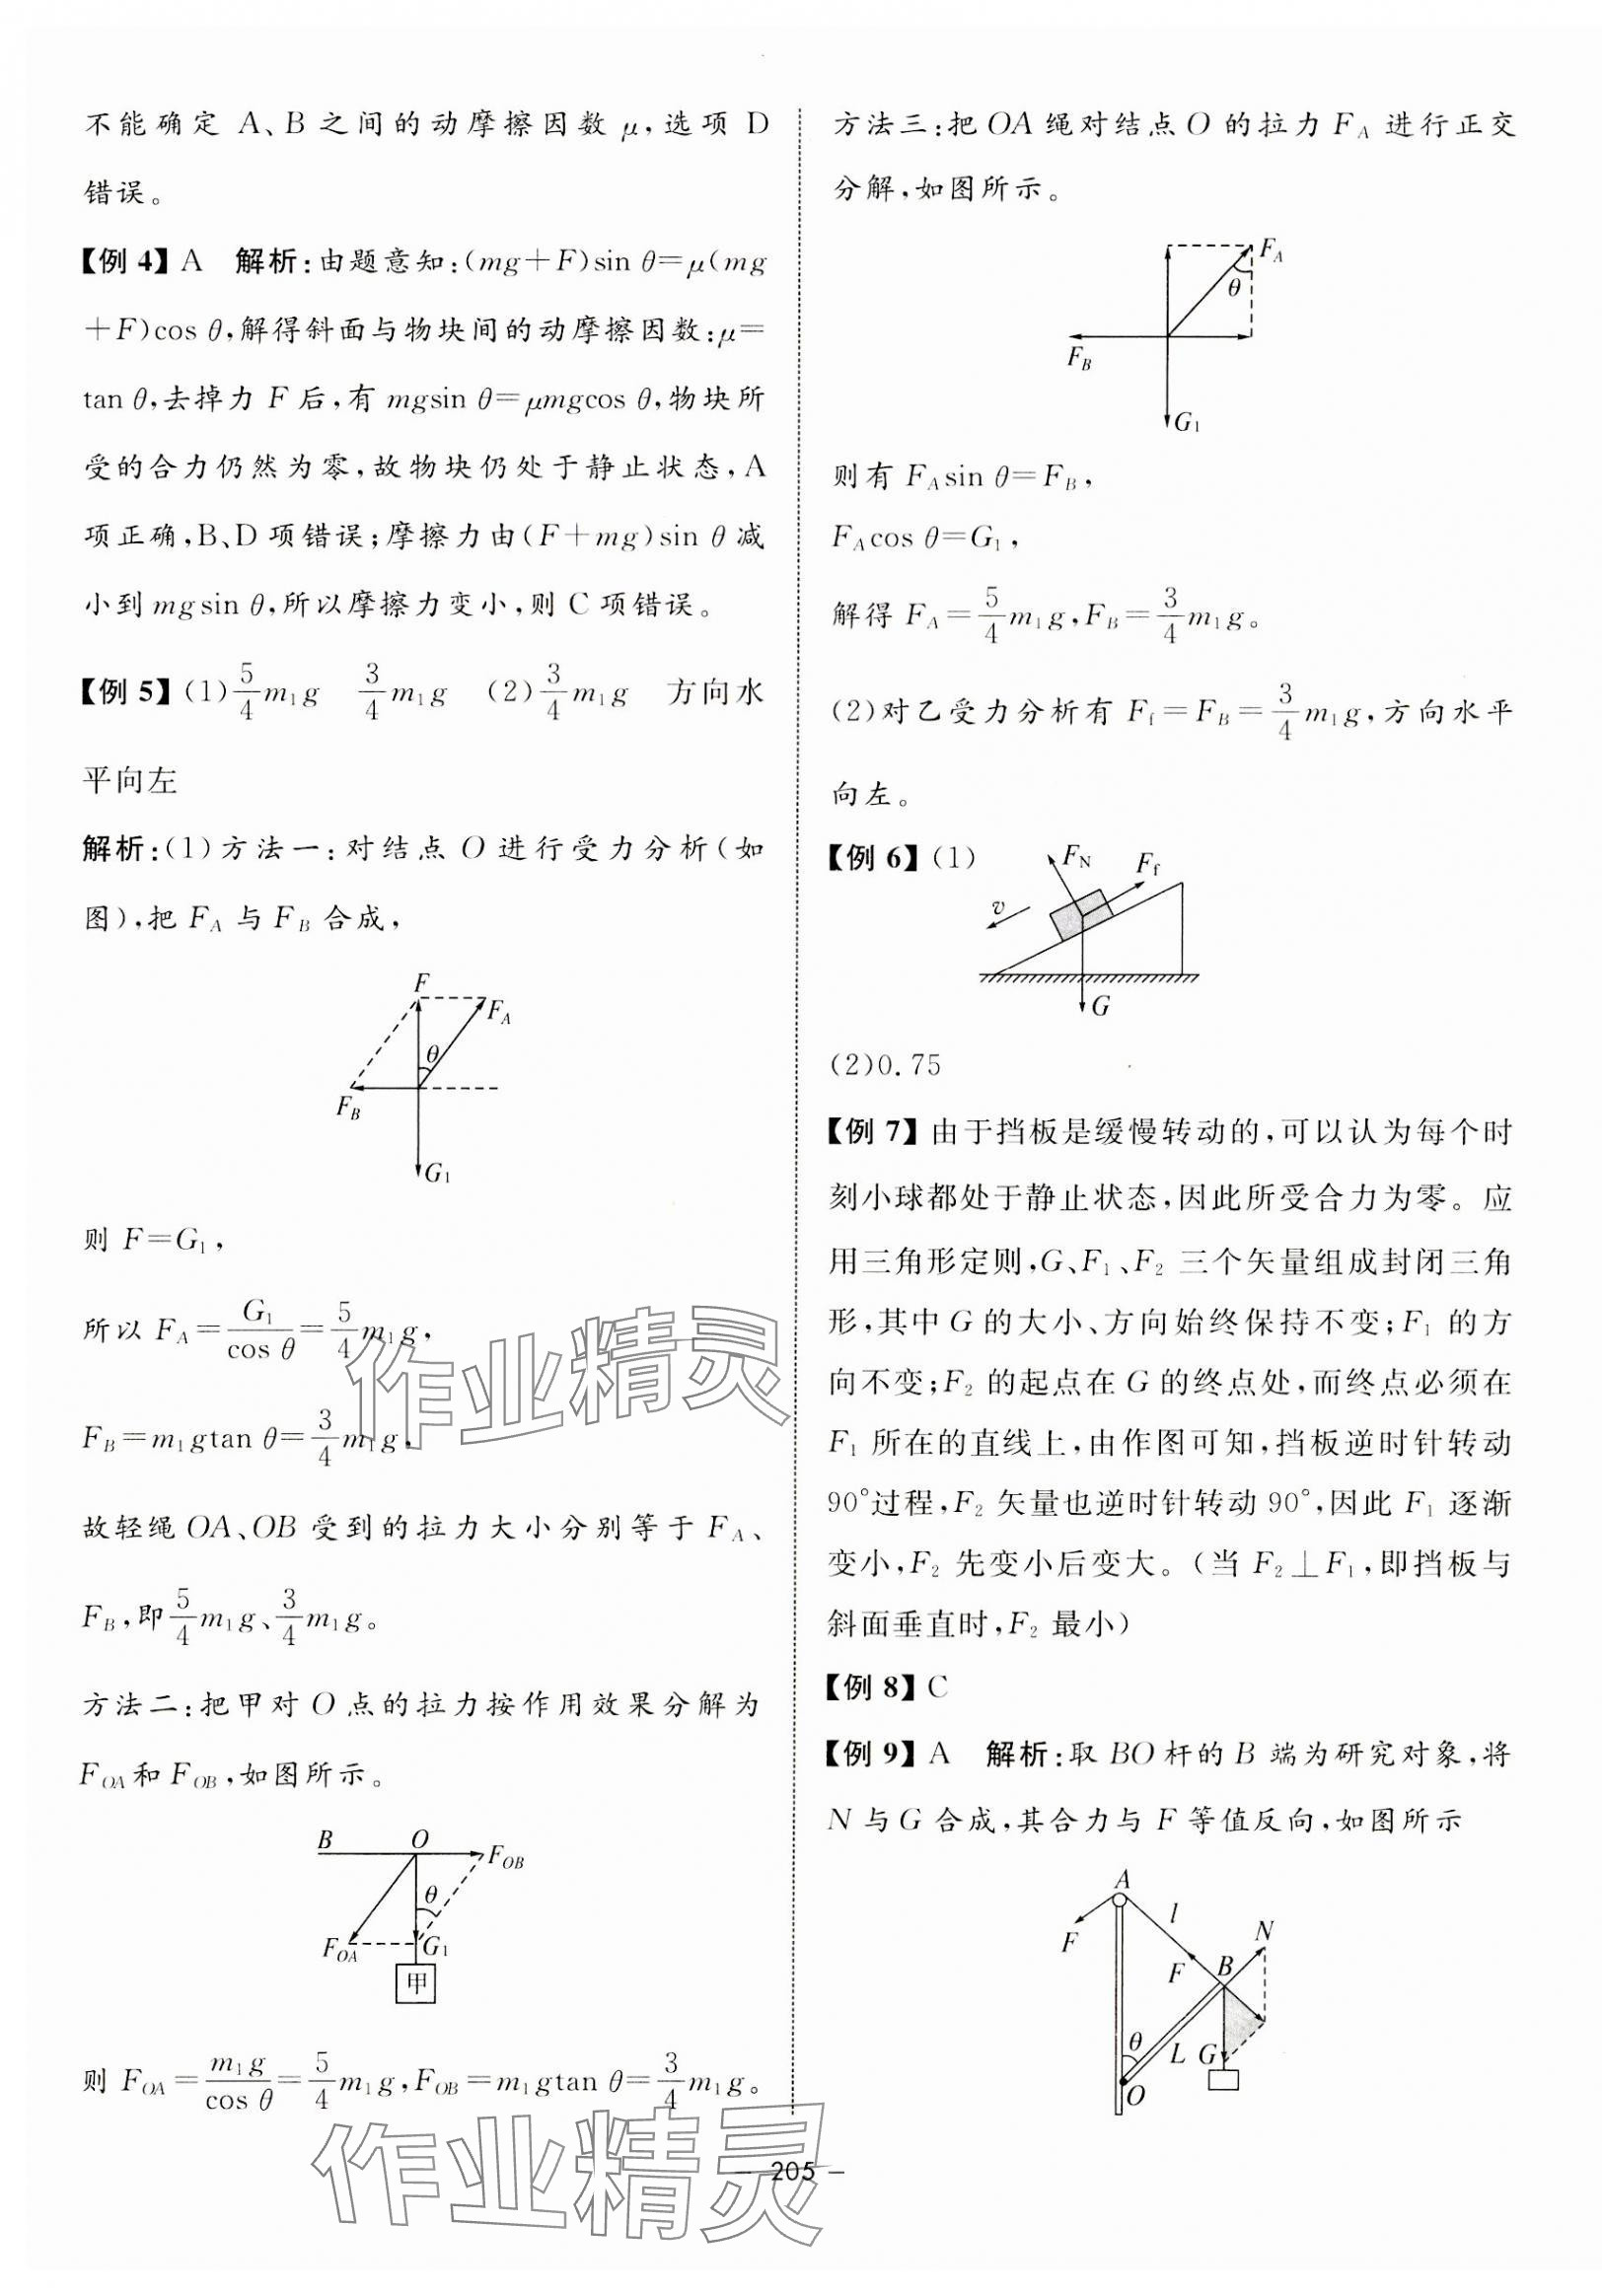 不能确定 A、B 之间的动摩擦因数 μ,选项 D
错误。
【例 4】A 解析:由题意知:(mg+F)sin θ=μ(mg
+F)cos θ,解得斜面与物块间的动摩擦因数:μ=
tan θ,去掉力 F 后,有 mgsin θ=μmgcos θ,物块所
受的合力仍然为零,故物块仍处于静止状态,A
项正确,B、D 项错误;摩擦力由(F+mg)sin θ 减
小到 mgsin θ,所以摩擦力变小,则 C 项错误。
【例 5】(1)5/4 m₁g 3/4 m₁g (2)3/4 m₁g 方向水
平向左
解析:(1)方法一:对结点 O 进行受力分析(如
图),把 F_A 与 F_B 合成,
F
F_A
θ
F_B
G₁
则 F=G₁,
所以 F_A=G₁/cos θ=5/4 m₁g,
F_B=m₁gtan θ=3/4 m₁g,
故轻绳 OA、OB 受到的拉力大小分别等于 F_A、
F_B,即 5/4 m₁g、3/4 m₁g。
方法二:把甲对 O 点的拉力按作用效果分解为
F_OA和 F_OB,如图所示。
B O F_OB
θ
F_OA G₁
甲
则 F_OA=m₁g/cos θ=5/4 m₁g,F_OB=m₁gtan θ=3/4 m₁g。
方法三:把 OA 绳对结点 O 的拉力 F_A 进行正交
分解,如图所示。
F_A
θ
F_B
G₁
则有 F_A sin θ=F_B,
F_A cos θ=G₁,
解得 F_A=5/4 m₁g,F_B=3/4 m₁g。
(2)对乙受力分析有 F_f=F_B=3/4 m₁g,方向水平
向左。
【例 6】(1)
F_N F_f
v
G
(2)0.75
【例 7】由于挡板是缓慢转动的,可以认为每个时
刻小球都处于静止状态,因此所受合力为零。应
用三角形定则,G、F₁、F₂ 三个矢量组成封闭三角
形,其中 G 的大小、方向始终保持不变;F₁ 的方
向不变;F₂ 的起点在 G 的终点处,而终点必须在
F₁ 所在的直线上,由作图可知,挡板逆时针转动
90°过程,F₂ 矢量也逆时针转动 90°,因此 F₁ 逐渐
变小,F₂ 先变小后变大。(当 F₂⊥F₁,即挡板与
斜面垂直时,F₂ 最小)
【例 8】C
【例 9】A 解析:取 BO 杆的 B 端为研究对象,将
N 与 G 合成,其合力与 F 等值反向,如图所示
A
l
F N
F B
θ
L G
O
作业精灵
作业精灵
— 205 —